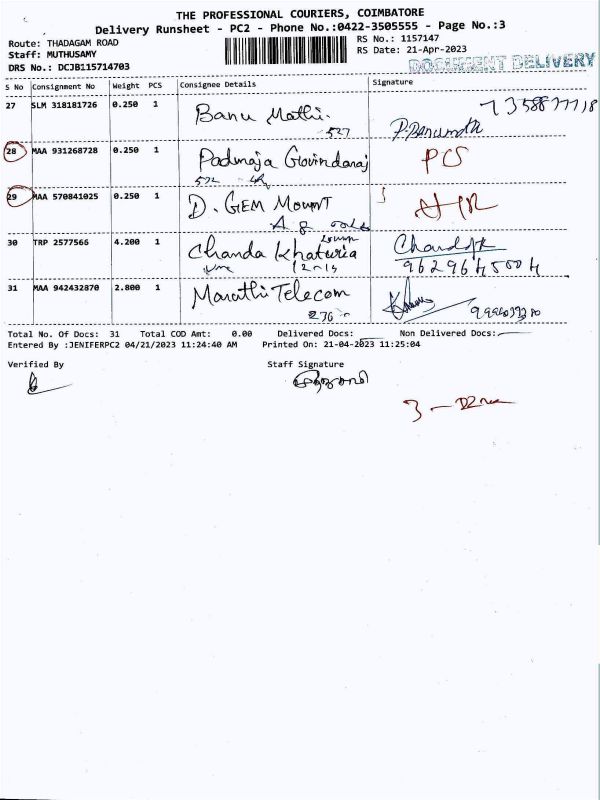 THE PROFESSIONAL COURIERS, COIMBATORE
Delivery Runsheet - PC2 - Phone No.:0422-3505555 - Page No.:3
Route: THADAGAM ROAD
RS No.: 1157147
Staff: MUTHUSAMY
RS Date: 21-Apr-2023
DOCUMENT DELIVERY
DRS No.: DCJB115714703
S No Consignment No Weight PCS Consignee Details Signature
27 SLM 318181726 0.250 1 Banu Mathi.
527
28 MAA 931268728 0.250 1 Padmaja Govindaraj PCS
29 MAA 570841025 0.250 1 D. GEM MOUNT
30 TRP 2577566 4.200 1 Chanda Khaturia
9629645004
31 MAA 942432870 2.800 1 Marathi Telecom
Total No. Of Docs: 31 Total COD Amt: 0.00 Delivered Docs: Non Delivered Docs:
Entered By :JENIFERPC2 04/21/2023 11:24:40 AM Printed On: 21-04-2023 11:25:04
Verified By Staff Signature
3 -